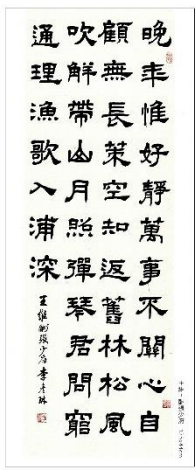 晚年惟好靜萬事不關心自
顧無長策空知返舊林松風
吹解帶山月照彈琴君問窮
通理漁歌入浦深
王維酬張少府